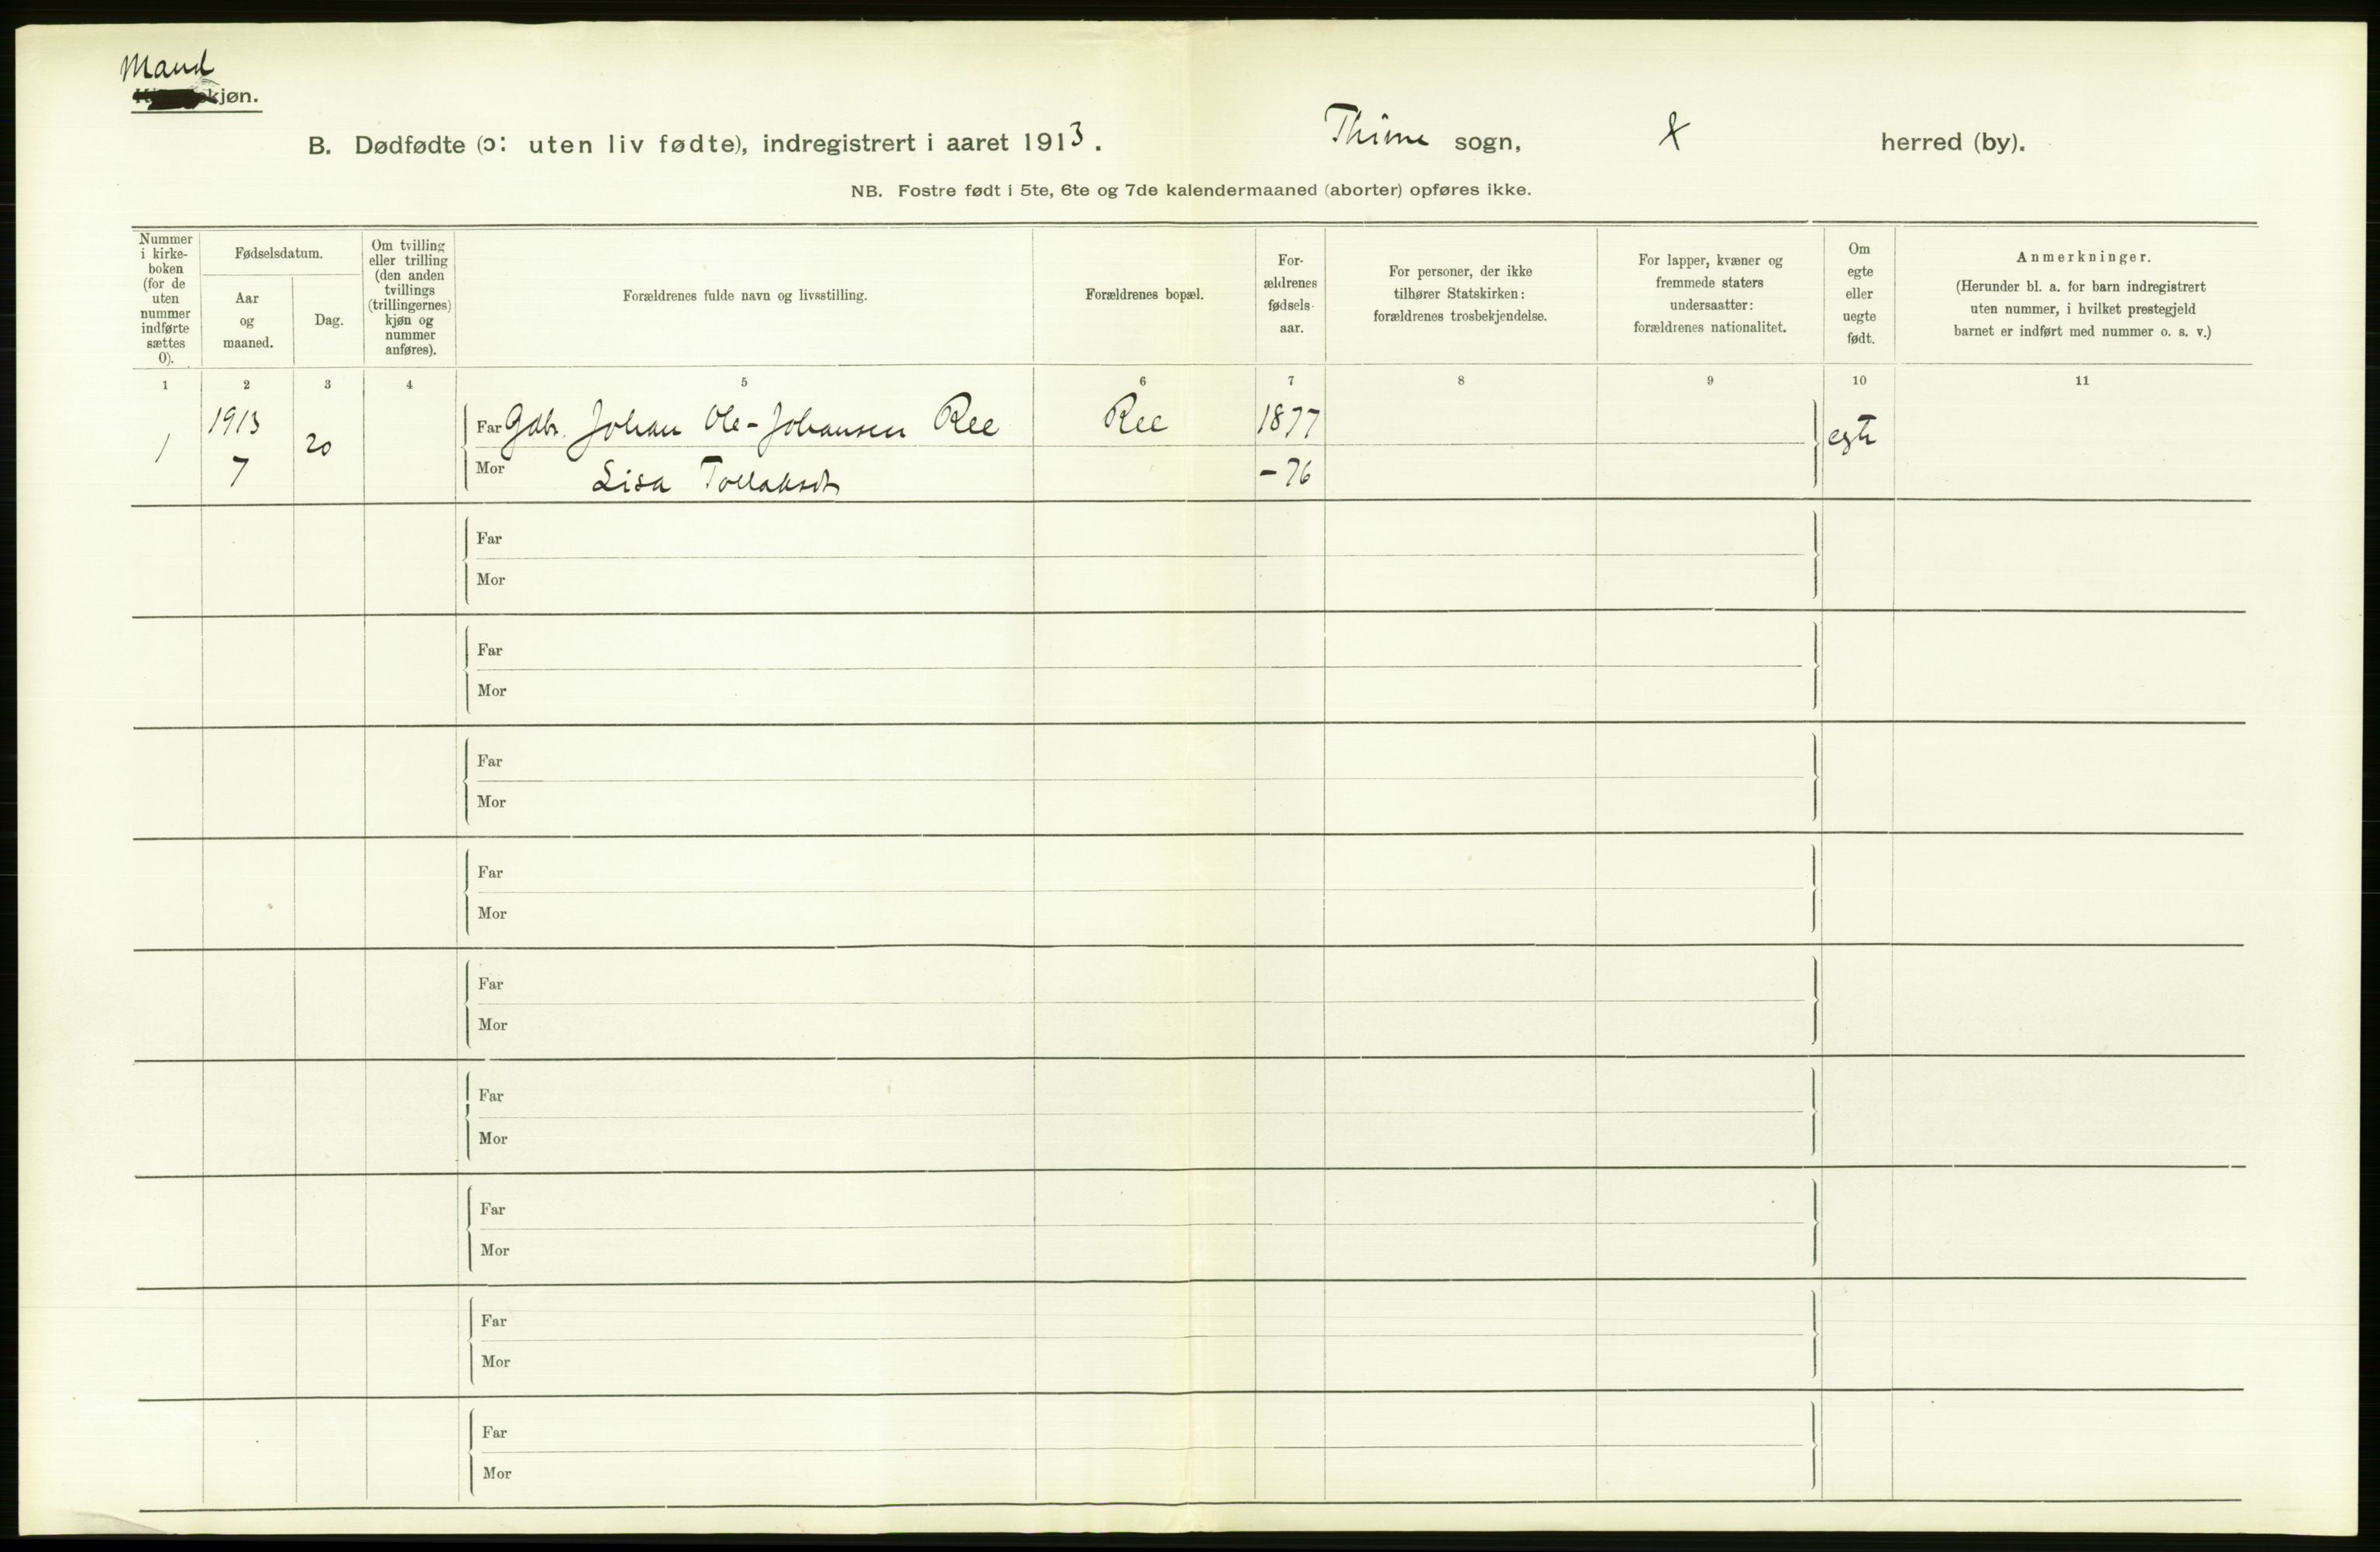 Mand
kjøn.
B. Dødfødte (ɔ: uten liv fødte), indregistrert i aaret 1913. Thime sogn, X herred (by).
NB. Fostre født i 5te, 6te og 7de kalendermaaned (aborter) opføres ikke.
Nummer i kirke-boken (for de uten nummer indførte sættes 0).
Fødselsdatum.
Aar og maaned.
Dag.
Om tvilling eller trilling (den anden tvillings (trillingernes) kjøn og nummer anføres).
Forældrenes fulde navn og livsstilling.
Forældrenes bopæl.
For-ældrenes fødsels-aar.
For personer, der ikke tilhører Statskirken: forældrenes trosbekjendelse.
For lapper, kvæner og fremmede staters undersaatter: forældrenes nationalitet.
Om egte eller uegte født.
Anmerkninger.
(Herunder bl. a. for barn indregistrert uten nummer, i hvilket prestegjeld barnet er indført med nummer o. s. v.)
1 2 3 4 5 6 7 8 9 10 11
1 1913 7 20 Far Gdbr. Johan Ole-Johansen Ree Ree 1877 egte
Mor Lisa Tollaksdt -76
Far
Mor
Far
Mor
Far
Mor
Far
Mor
Far
Mor
Far
Mor
Far
Mor
Far
Mor
Far
Mor